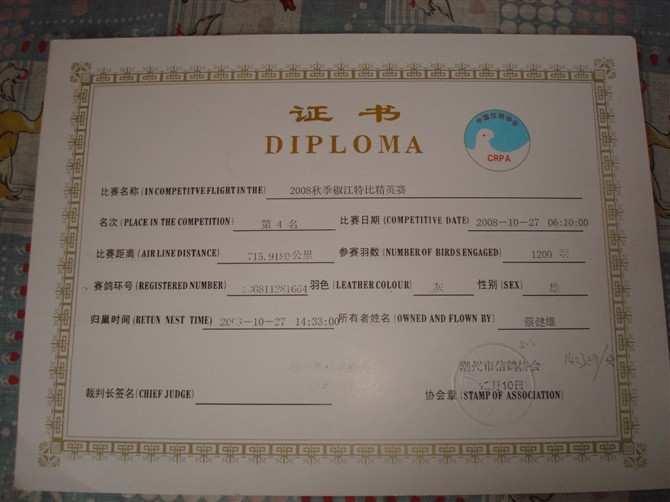 证书
DIPLOMA
中国信鸽协会
CRPA
比赛名称(IN COMPETITVE FLIGHT IN THE) 2008秋季椒江特比精英赛
名次(PLACE IN THE COMPETITION) 第 4 名 比赛日期(COMPETITIVE DATE) 2008-10-27 06:10:00
比赛距离(AIR LINE DISTANCE) 715.9180公里 参赛羽数(NUMBER OF BIRDS ENGAGED) 1200 羽
赛鸽环号(REGISTERED NUMBER) 羽色(LEATHER COLOUR) 灰 性别(SEX) 雄
归巢时间(RETUN NEST TIME) 2008-10-27 14:33:00 所有者姓名(OWNED AND FLOWN BY) 蔡健雄
潮州市信鸽协会
12月10日
裁判长签名(CHIEF JUDGE) 协会章(STAMP OF ASSOCIATION)